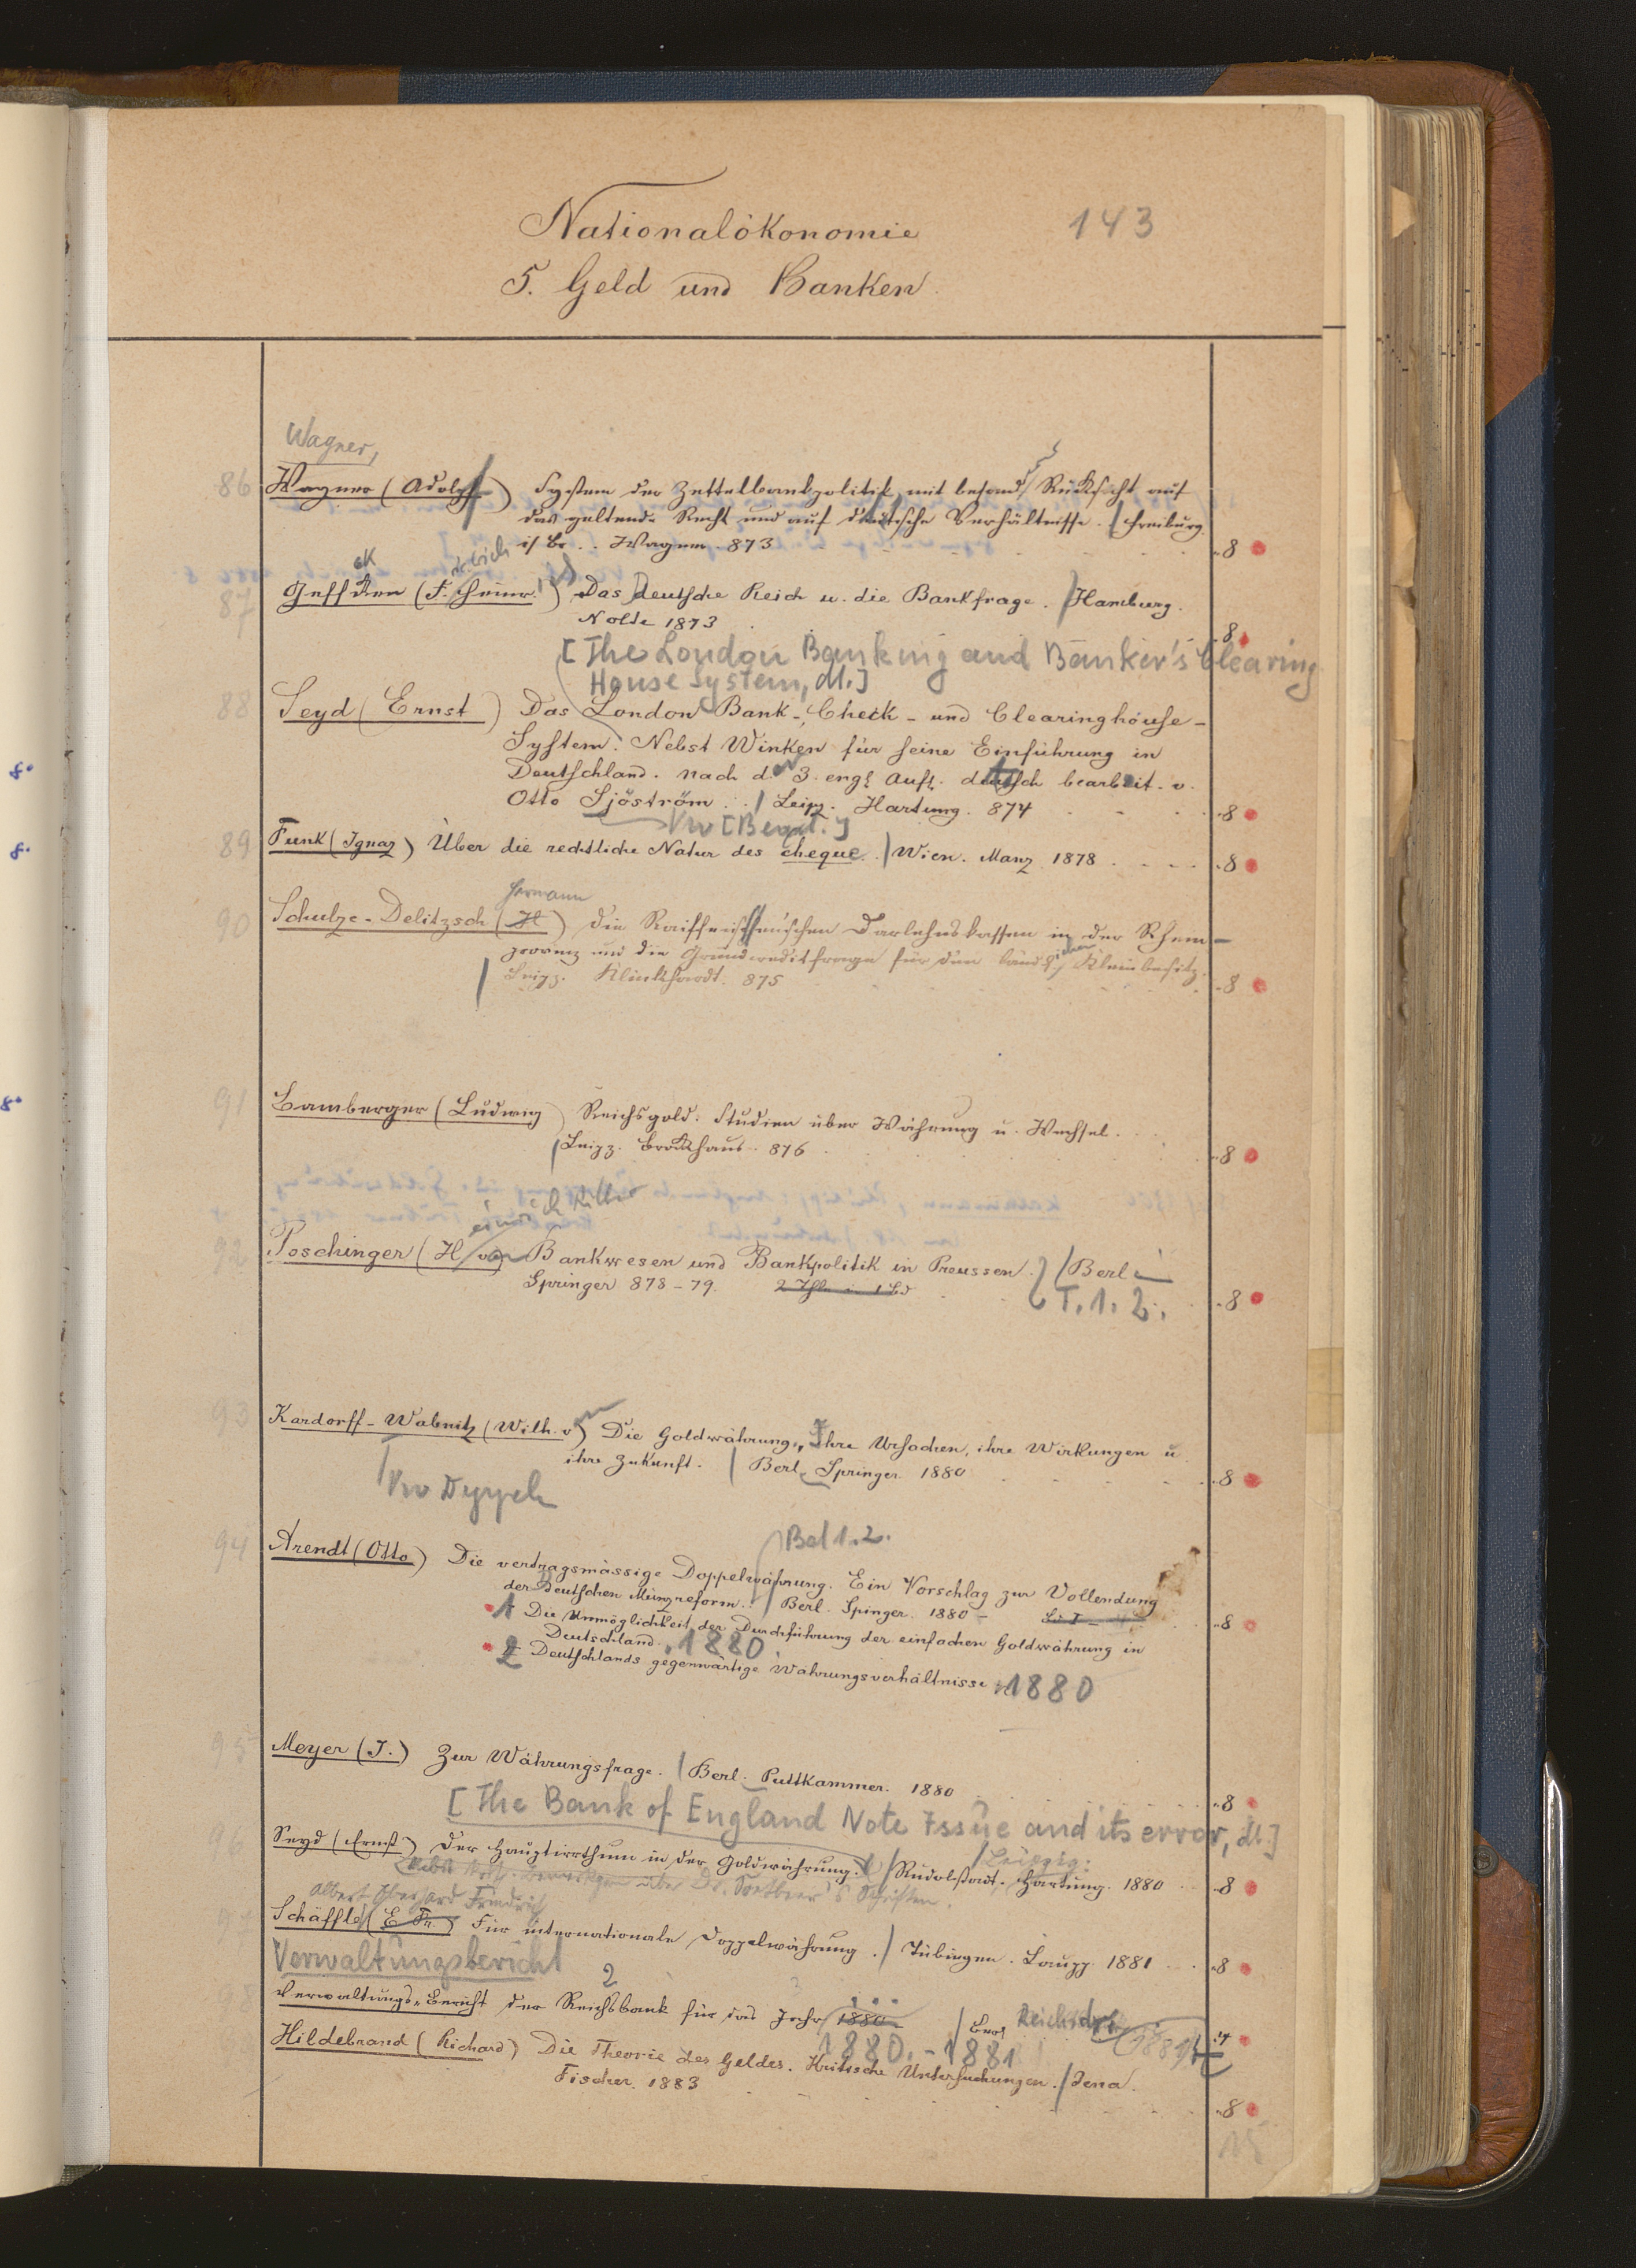 Nationalökonomie 143
5. Geld und Banken
Wagner,
86 Wagner (Adolph) System der Zettelbankpolitik, mit besond. Rücksicht auf
das geltende Recht und auf deutsche Verhältnisse. Freiburg
i. Br. Wagner. 873 8
87 Geffcken (F. Heinr.) Das deutsche Reich u. die Bankfrage. Hamburg.
Nolte 1873 8
[The London Banking and Banker's Clearing
House System, dt.]
88 Seyd (Ernst) Das London Bank-, Check- und Clearinghouse-
System. Nebst Winken für seine Einführung in
8° Deutschland. Nach d. 3. engl. Aufl. deutsch bearbeit. v.
Otto Sjöström. Leipz. Hartung. 874 8
Vw [Begr.]
8° 89 Funk (Ignaz) Über die rechtliche Natur des cheque. Wien. Manz 1878 8
Hermann
90 Schulze-Delitzsch (H) Die Raiffeisen'schen Darlehnskassen in der Rhein-
provinz und die Grundcreditfrage für den ländlichen Kleinbesitz.
Leipz. Klinkhardt. 875 8
8° 91 Bamberger (Ludwig) Reichsgold. Studien über Währung u. Wechsel.
Leipz. Brockhaus. 876 8
92 Poschinger (H von Bankwesen und Bankpolitik in Preussen. Berlin
Springer 878-79. 2 Thle in 1 Bd T. 1. 2. 8
93 Kardorff-Wabnitz (Wilh. v) Die Goldwährung, Ihre Ursachen, ihre Wirkungen u
ihre Zukunft. Berl. Springer 1880 8
Bd 1.2.
94 Arendt (Otto) Die vertragsmässige Doppelwährung. Ein Vorschlag zur Vollendung
der Deutschen Münzreform. Berl. Spinger. 1880 - 8
1 Die Unmöglichkeit der Durchführung der einfachen Goldwährung in
Deutschland. 1880
2 Deutschlands gegenwärtige Währungsverhältnisse 1880
95 Meyer (J.) Zur Währungsfrage. Berl. Puttkammer. 1880 8
[The Bank of England Note Issue and its error, dt.]
Leipzig:
96 Seyd (Ernst) Der Hauptirrthum in der Goldwährung. Rudolstadt. Hartung. 1880 8
Nebst Bemerkgen über Dr. Soetbeer's Schriften.
Albert Eberhard Friedrich
97 Schäffle (E Fr.) Für internationale Doppelwährung. Tübingen. Laupp. 1881 8
Verwaltungsbericht
2
98 Verwaltungs-Bericht der Reichsbank für das Jahr 1880 Berl Reichsdr. 1881 4
1880.-1881
Hildebrand (Richard) Die Theorie des Geldes. Kritische Untersuchungen. Jena.
Fischer. 1883 8
15